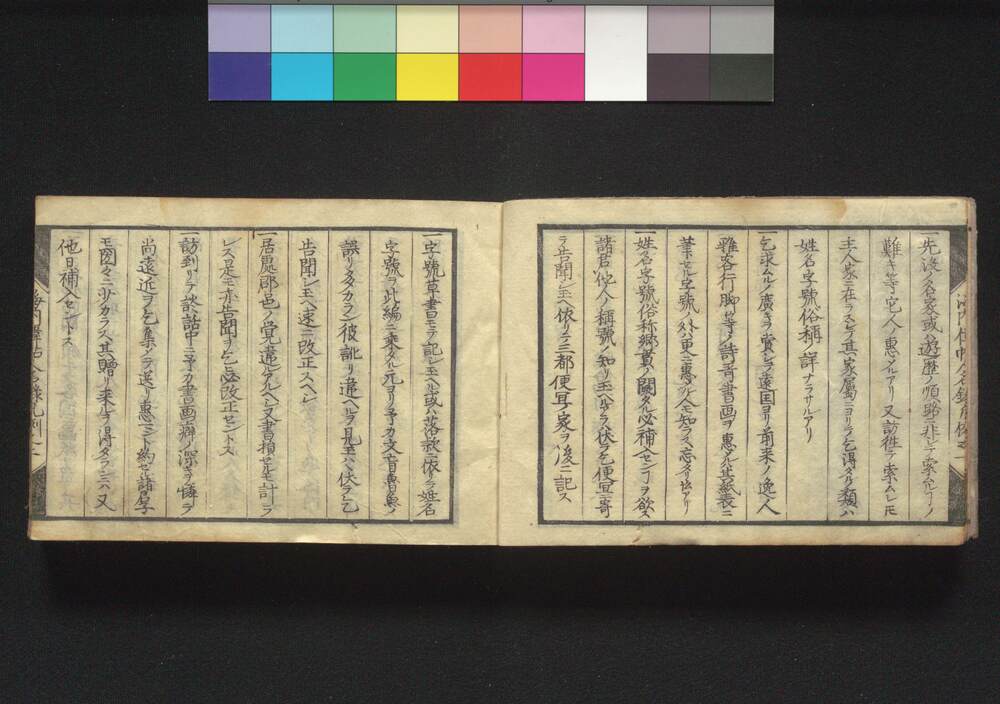 一先没ノ名家或ハ遊歴ノ順路ニ非レテ索ムルノ
難キ等它人ノ惠メルアリ又訪徃テ索ムレ𪜈
主人家ニ在ラスシテ其家属ニヨリテ乞得タル類ハ
姓名字號俗稱ノ詳ナラサルアリ
一乞求ムルノ廣キヲ賞シテ遠国ヨリ前来ノ逸人
雅客行脚セル等ノ詩哥書画ヲ惠メル其紙表ニ
筆セル字號ノ外ハ更ニ惠メル人モ知ラス忘タリ
一姓名字號俗称郷貫ノ闕タル必補センヿヲ欲ス
諸君它人ノ稱號ノ知リ玉ヘルアラハ伏テ乞便冝ニ寄
テ告聞シ玉ヘ依リテ三都便冝ノ家ヲ後ニ記ス
一字號草書モテ記シ玉ヘル或ハ落款ニ依テ姓名
字號ヲ此編ニ乗タル元ヨリ予カ文盲魯魚ノ
誤リ多カラン彼訛リ違ヘルヲ見玉ハヽ伏テ乞
告聞シ玉ヘ速ニ改正スヘシ
一居處郡邑ノ覚違タルヘシ又書損セルモ計ラ
レス是モ亦告聞ヲ乞必改正セントス
一訪到リテ談話中ニ予カ書画癖ノ深キヲ憐テ
尚遠近ヲ乞集メテ送リ惠マント約セル諸君子
モ図々ニ少カラス其贈リ来ルヲ得タランニハ又
他日補入セントス